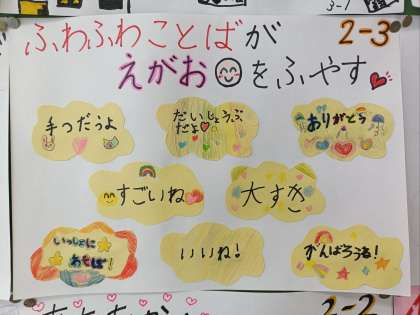 3-1
ふわふわことばが
2-3
えがお
をふやす
手つだうよ
だいじょうぶ
だよ
ありがとう
すごいね
大すき
いっしょに
あそぼ!
いいね!
がんばろうね!
2-2